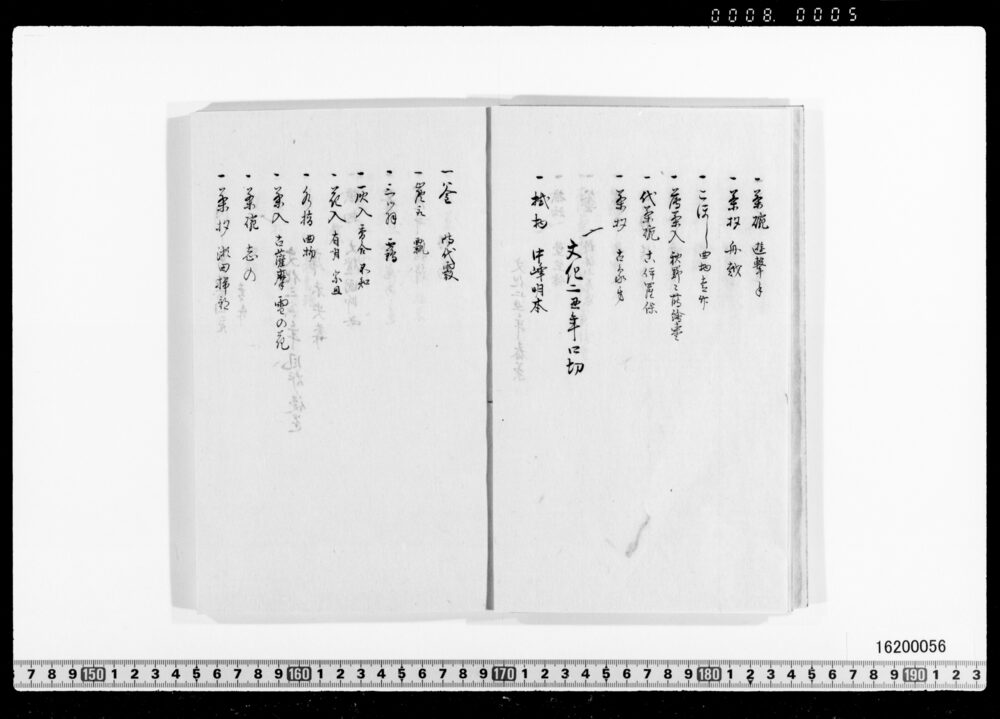 0008. 0005
一 茶碗 遊撃手
一 茶杓 舟越
一 こほし 曲物
一 薄茶入 秋野ゝ蒔絵
一 代茶碗 古伊羅保
一 茶杓
文化二丑年口切
一 掛物 中峰明本
一 釜 時代霰
一 炭斗 瓢
一 三ツ羽 鶴
一 灰入
一 花入 有月 宗旦
一 水指 曲物
一 茶入 古薩摩 雪の花
一 茶碗 志の
一 茶杓 瀬田掃部
16200056
7 8 9 150 1 2 3 4 5 6 7 8 9 160 1 2 3 4 5 6 7 8 9 170 1 2 3 4 5 6 7 8 9 180 1 2 3 4 5 6 7 8 9 190 1 2 3